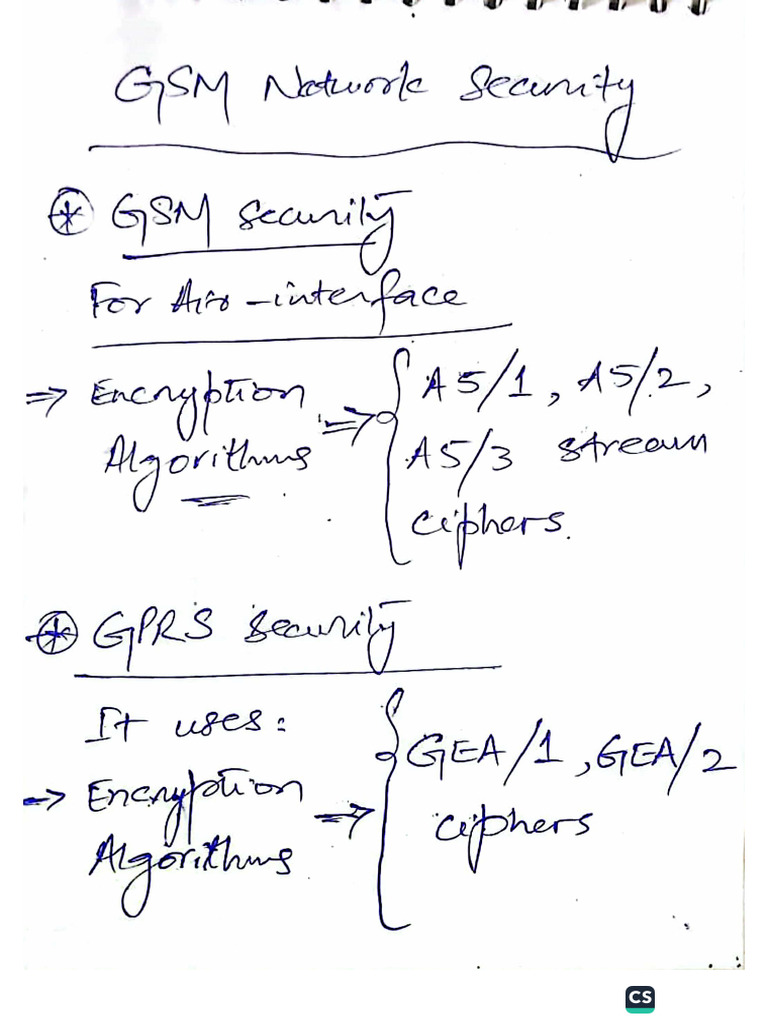 GSM Network Security
GSM Security
For Air-interface
⇒ Encryption Algorithms ⇒ { A5/1, A5/2,
A5/3 stream
ciphers.
GPRS Security
It uses:
→ Encryption Algorithms ⇒ { GEA/1, GEA/2
ciphers
CS